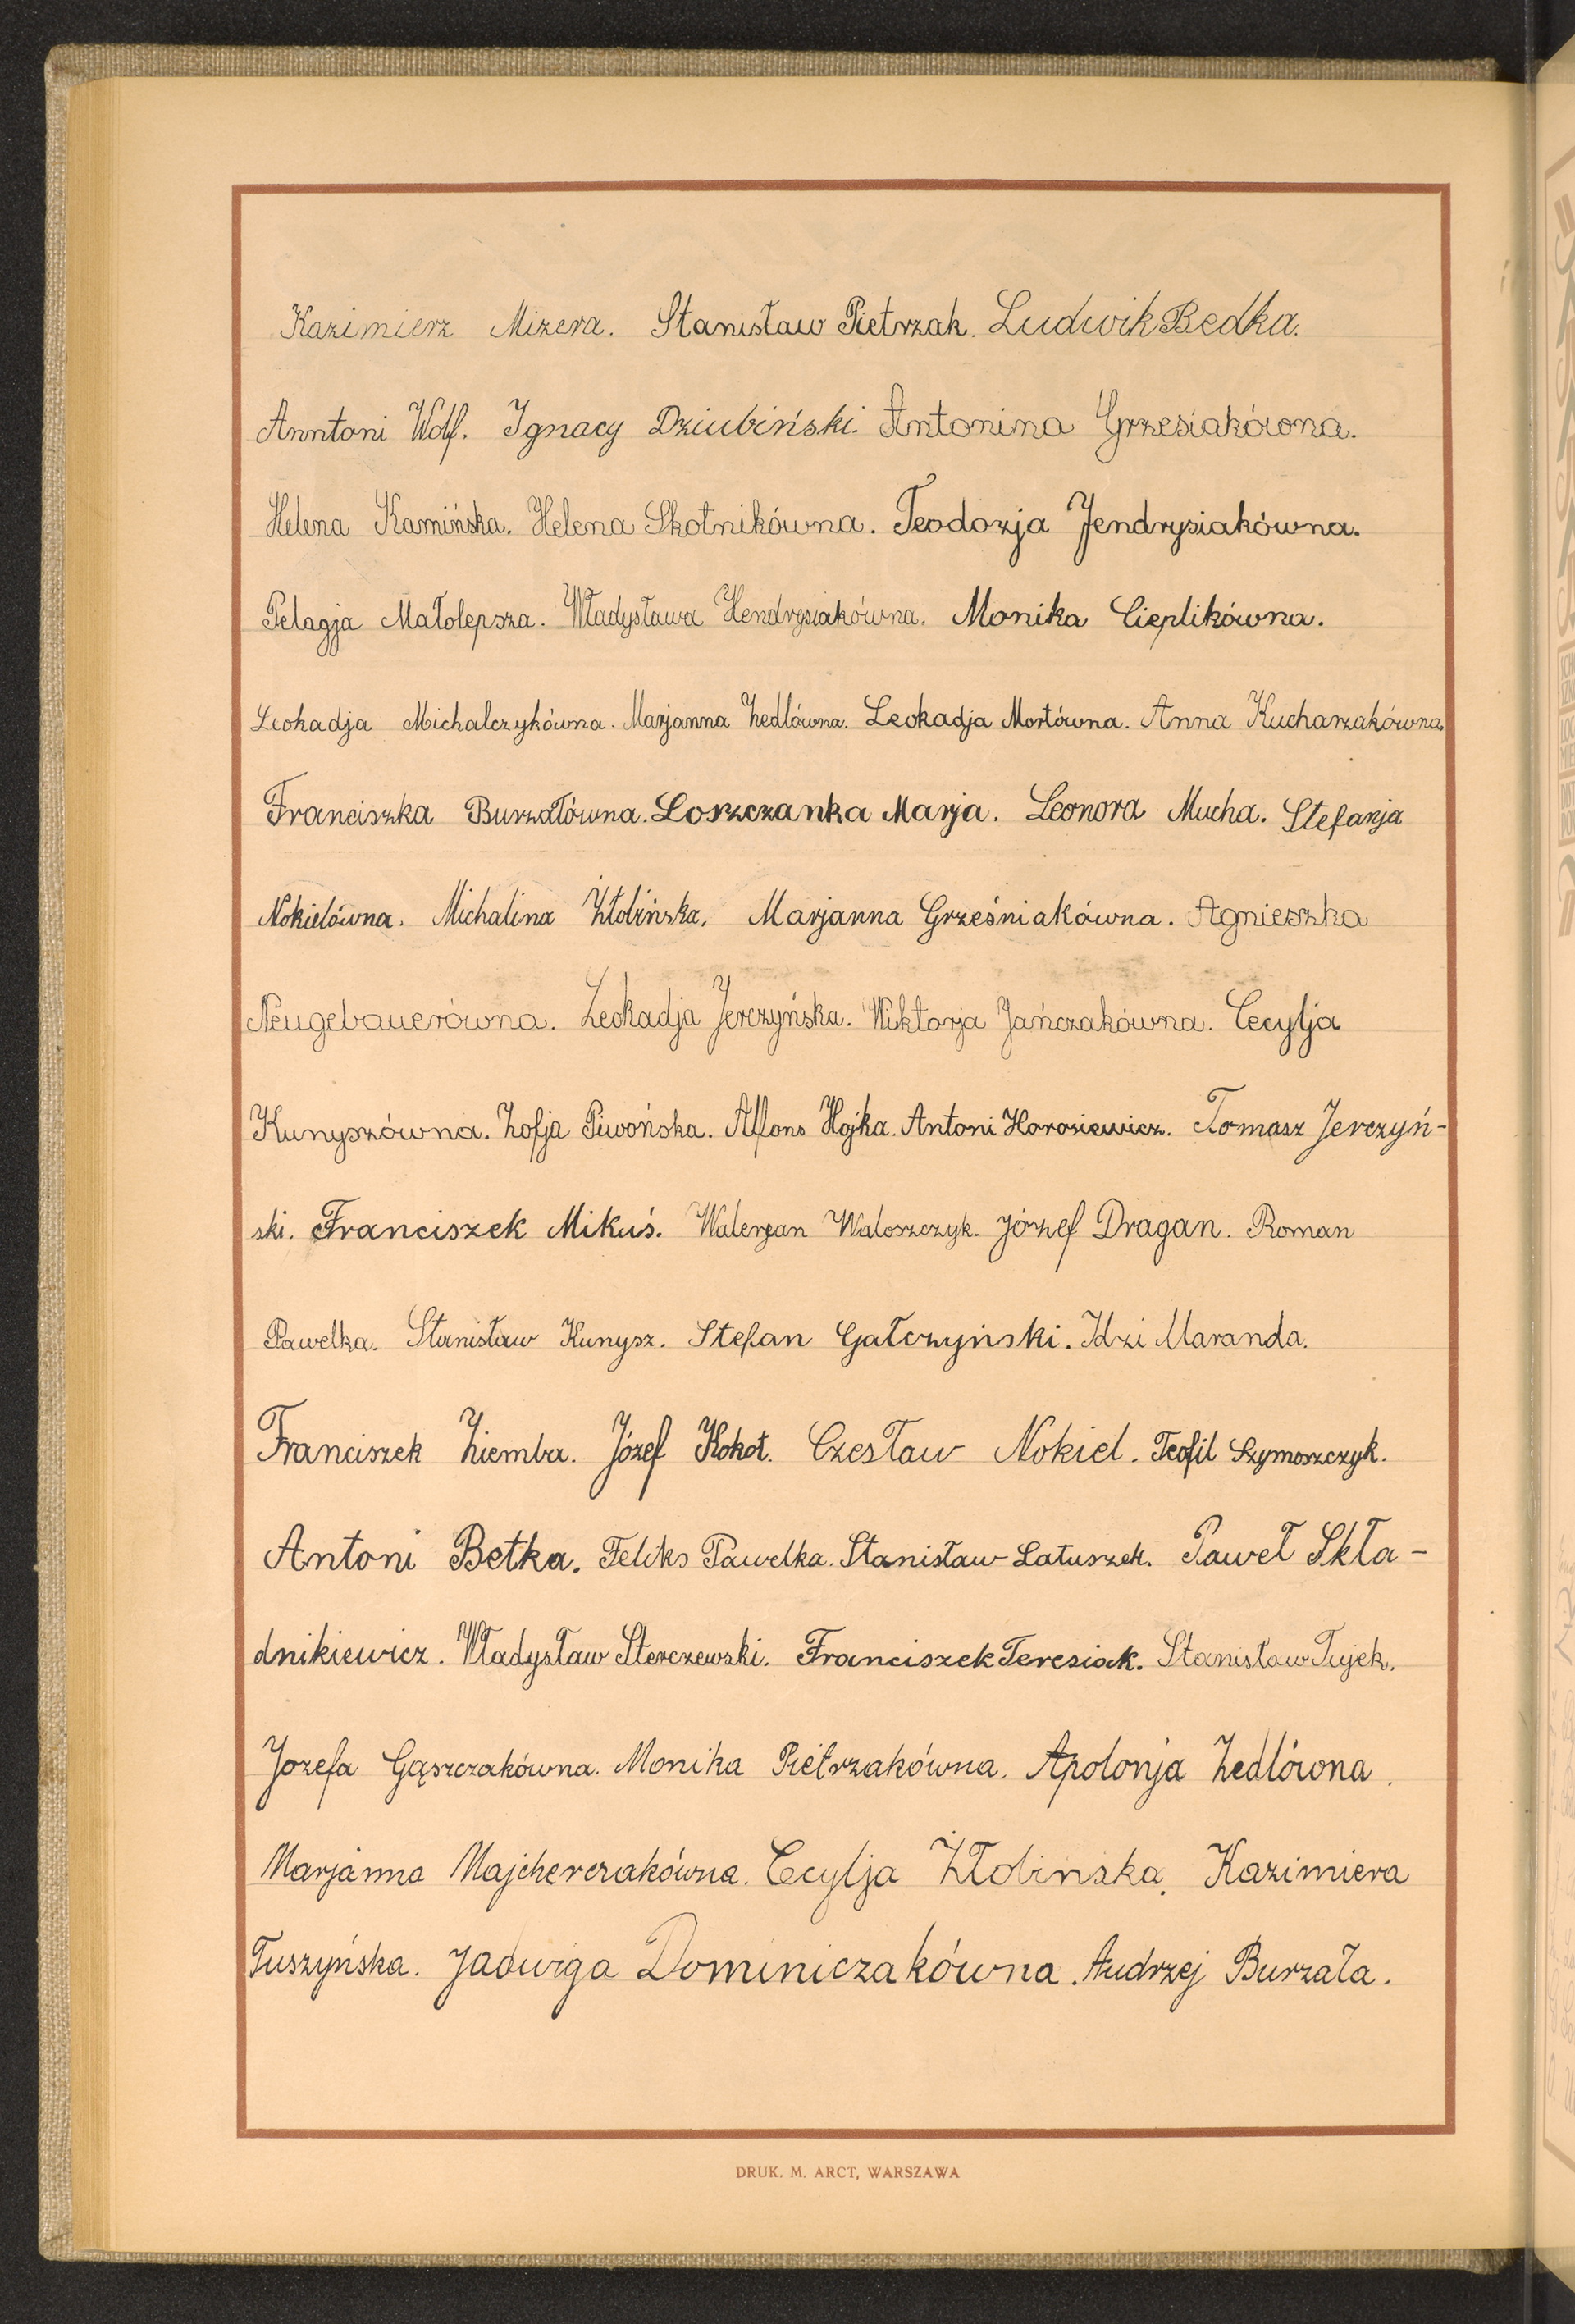 Kazimierz Mizera. Stanisław Pietrzak. Ludwik Bedka.
Anntoni Wolf. Ignacy Dziubiński. Antonina Grzesiakówna.
Helena Kamińska. Helena Skotnikówna. Teodozja Jendrysiakówna.
Pelagja Małolepsza. Władysława Hendrysiakówna. Monika Cieplikówna.
Leokadja Michalczykówna. Marjanna Zedlówna. Leokadja Mortówna. Anna Kucharzakówna.
Franciszka Burzałówna. Loszczanka Marja. Leonora Mucha. Stefanja
Nokielówna. Michalina Żłobińska. Marjanna Grześniakówna. Agnieszka
Neugebauerówna. Leokadja Jerczyńska. Wiktorja Jańczakówna. Cecylja
Kunyszówna. Zofja Piwońska. Alfons Hojka. Antoni Haroziewicz. Tomasz Jerczyń-
ski. Franciszek Mikuś. Walerjan Waloszczyk. Józef Dragan. Roman
Pawelka. Stanisław Kunysz. Stefan Gałczyński. Idzi Maranda.
Franciszek Ziemba. Józef Kokot. Czesław Nokiel. Teofil Szymoszczyk.
Antoni Betka. Feliks Pawelka. Stanisław Łatuszek. Paweł Skła-
dnikiewicz. Władysław Sterczewski. Franciszek Teresiak. Stanisław Tujek.
Jozefa Gąszczakówna. Monika Pietrzakówna. Apolonja Zedlówna.
Marjanna Majcherczakówna. Cecylja Żłobinska. Kazimiera
Tuszyńska. Jadwiga Dominiczakówna. Andrzej Burzała.
DRUK. M. ARCT, WARSZAWA